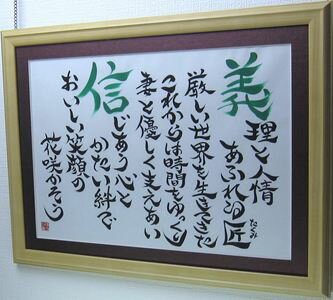 義理と人情
あふれる匠
たくみ
厳しい世界を生きてきた
これからは時間をゆっくり
妻と優しく支えあい
信じあう心と
かたい絆で
おいしい笑顔の
花咲かそう